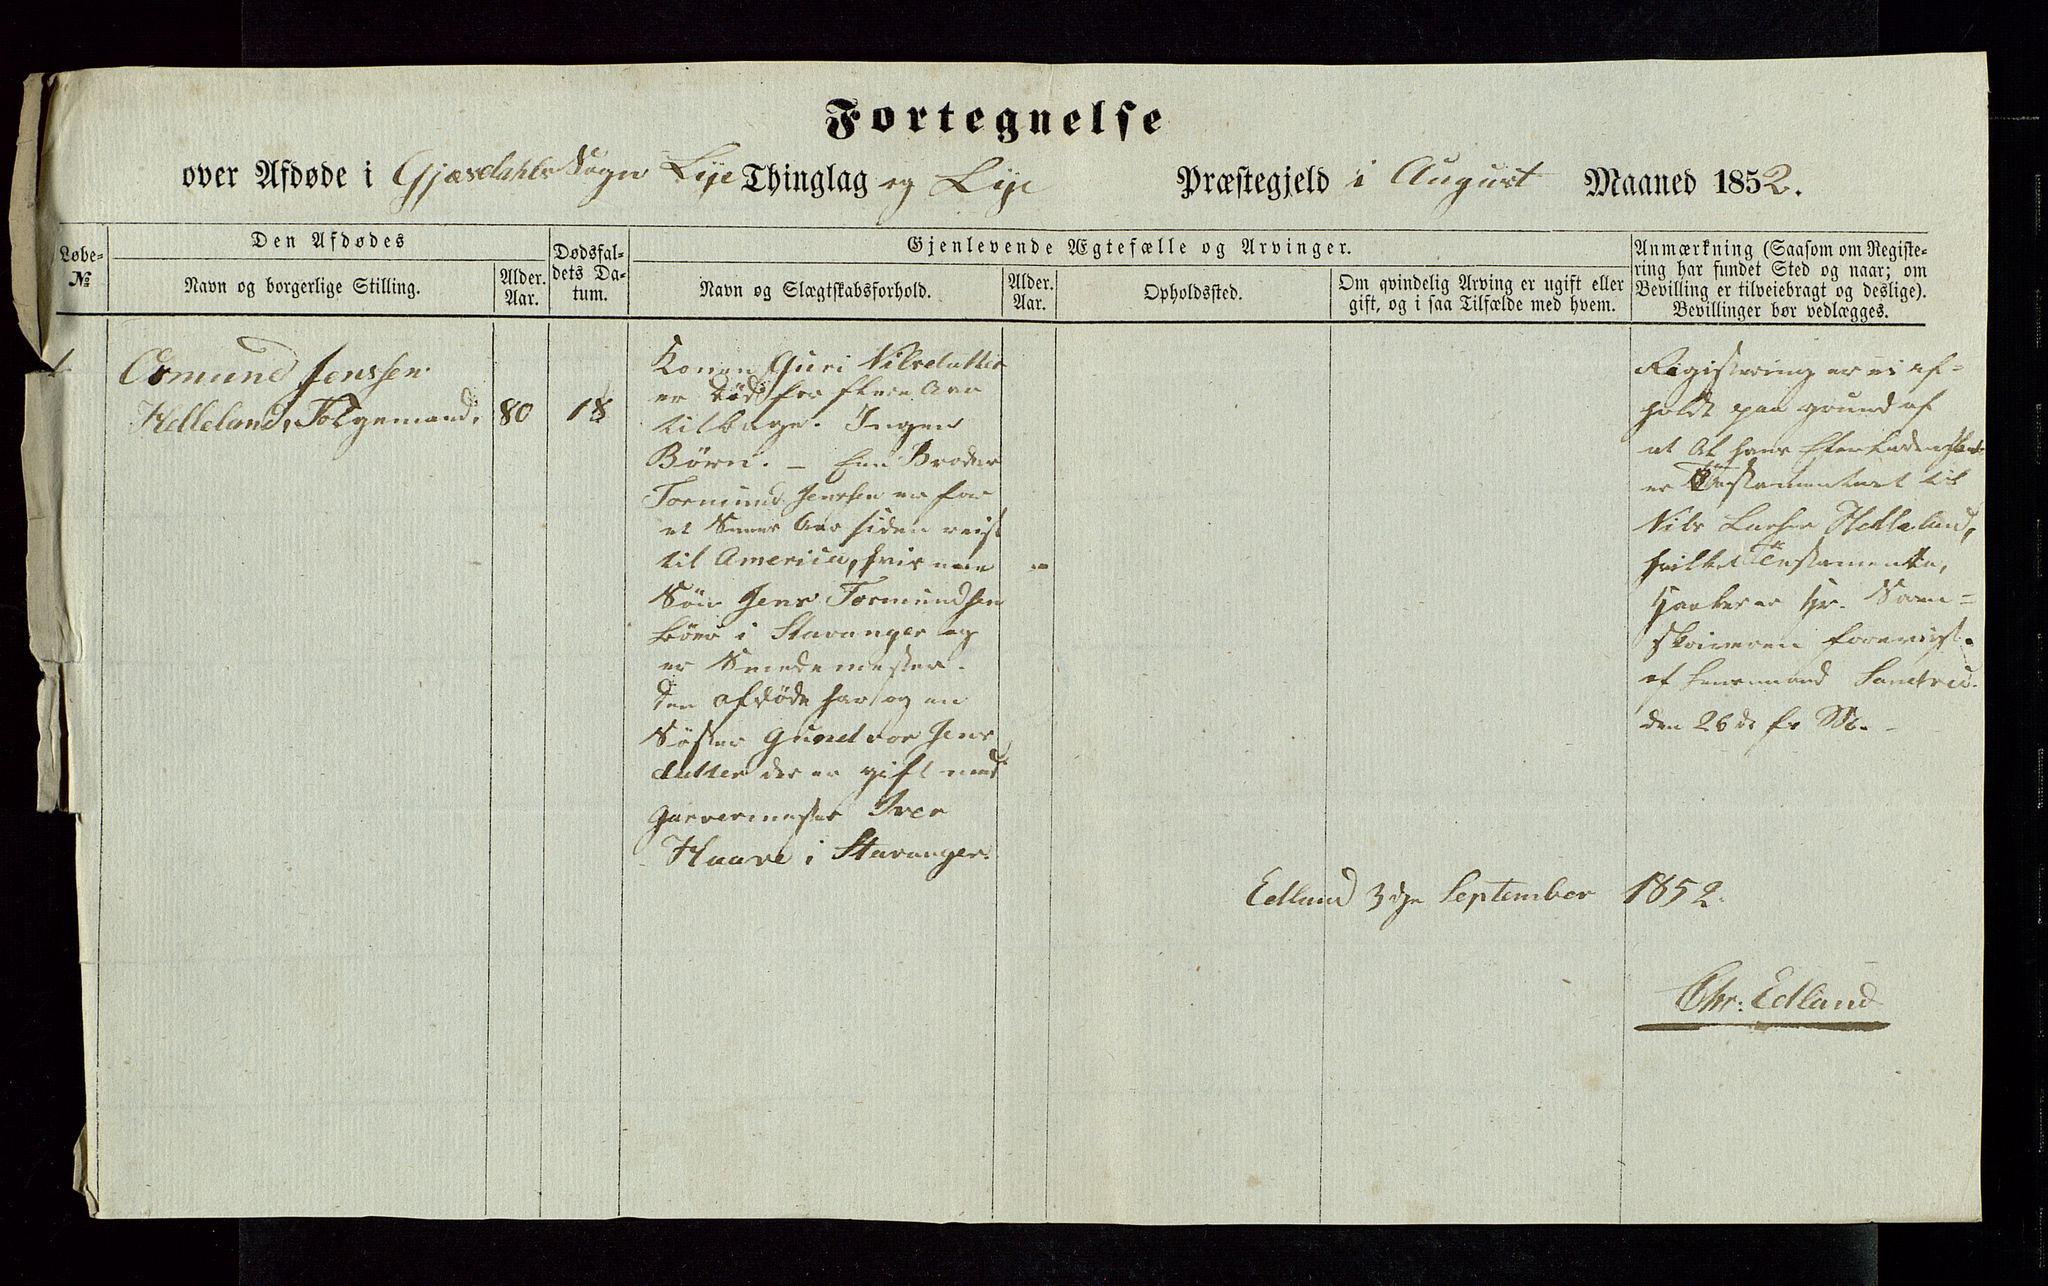 Fortegnelse
over Afdøde i Gjæsdahls Sogn Lye Thinglag og Lye Præstegjeld i August Maaned 1852.
Løbe-
No
Den Afdødes
Navn og borgerlige Stilling.
Alder.
Aar.
Dødsfal-
dets Da-
tum.
Gjenlevende Ægtefælle og Arvinger.
Navn og Slægtskabsforhold.
Alder.
Aar.
Opholdssted.
Om qvindelig Arving er ugift eller
gift, og i saa Tilfælde med hvem.
Anmærkning (Saasom om Registe-
ring har fundet Sted og naar; om
Bevilling er tilveiebragt og deslige).
Bevillinger bør vedlægges.
1
Osmund Jenssen
Helleland, Folgemand,
80
18
Konen Guri Nilsdatter
er død for flere Aar
tilbage. Ingen
Børn. – Een Broder
Tormund Jenssen er for
et Snees Aar siden reist
til America, hvis ene
Søn Jens Tormundsen
boer i Stavanger og
er Smedemester.
den afdøde har og en
Søster Gundvor Jens
datter der er gift med
Garvermester Iver
Haave i Stavanger.
Registrering er ei af-
holdt paa grund af
at Al hans Efterladenskab
er Testamenteret til
Nils Larsen Helleland,
hvilket Testamente,
Hr. Soren-
skriveren foreviist
af Lensmand
den 26de f. M. –
Edland 3die September 1852.
Chr: Edland